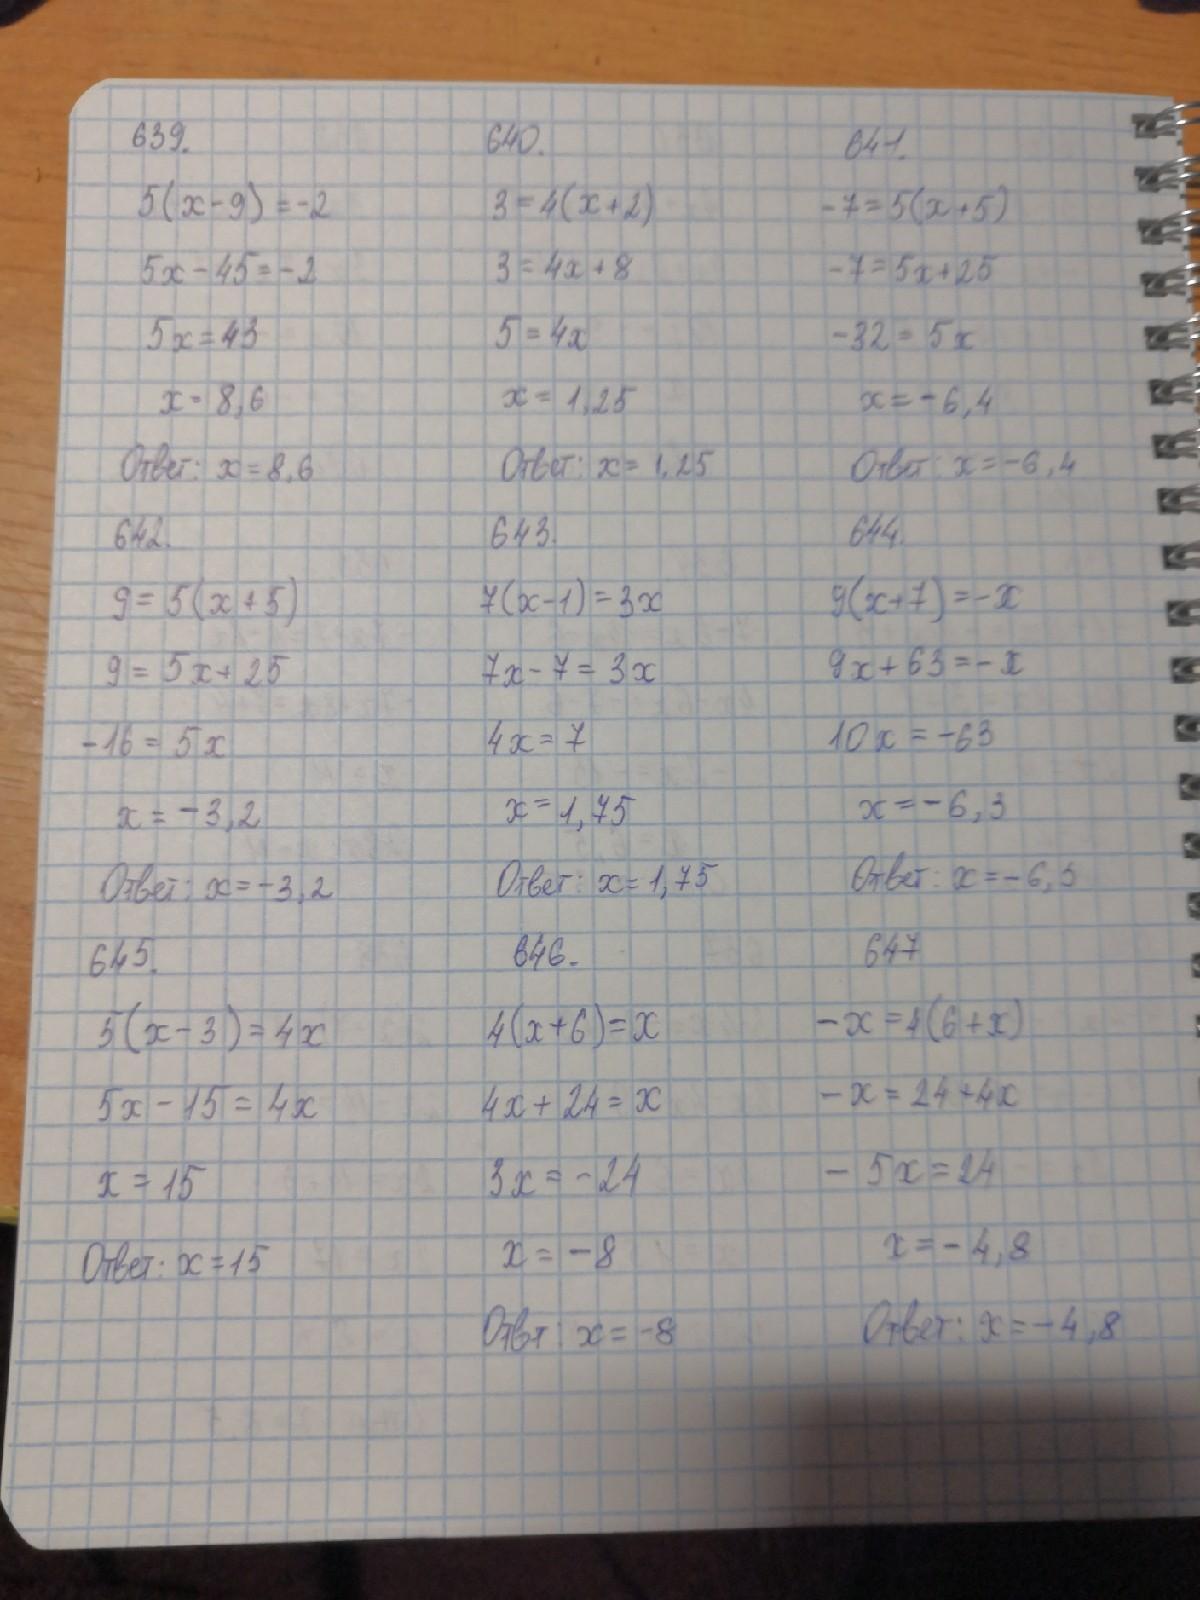 639.
5(x-9)=-2
5x-45=-2
5x=43
x=8,6
Ответ: x=8,6
640.
3=4(x+2)
3=4x+8
5=4x
x=1,25
Ответ: x=1,25
641.
-7=5(x+5)
-7=5x+25
-32=5x
x=-6,4
Ответ: x=-6,4
642.
9=5(x+5)
9=5x+25
-16=5x
x=-3,2
Ответ: x=-3,2
643.
7(x-1)=3x
7x-7=3x
4x=7
x=1,75
Ответ: x=1,75
644.
9(x+7)=-x
9x+63=-x
10x=-63
x=-6,3
Ответ: x=-6,3
645.
5(x-3)=4x
5x-15=4x
x=15
Ответ: x=15
646.
4(x+6)=x
4x+24=x
3x=-24
x=-8
Отвт: x=-8
647
-x=4(6+x)
-x=24+4x
-5x=24
x=-4,8
Ответ: x=-4,8